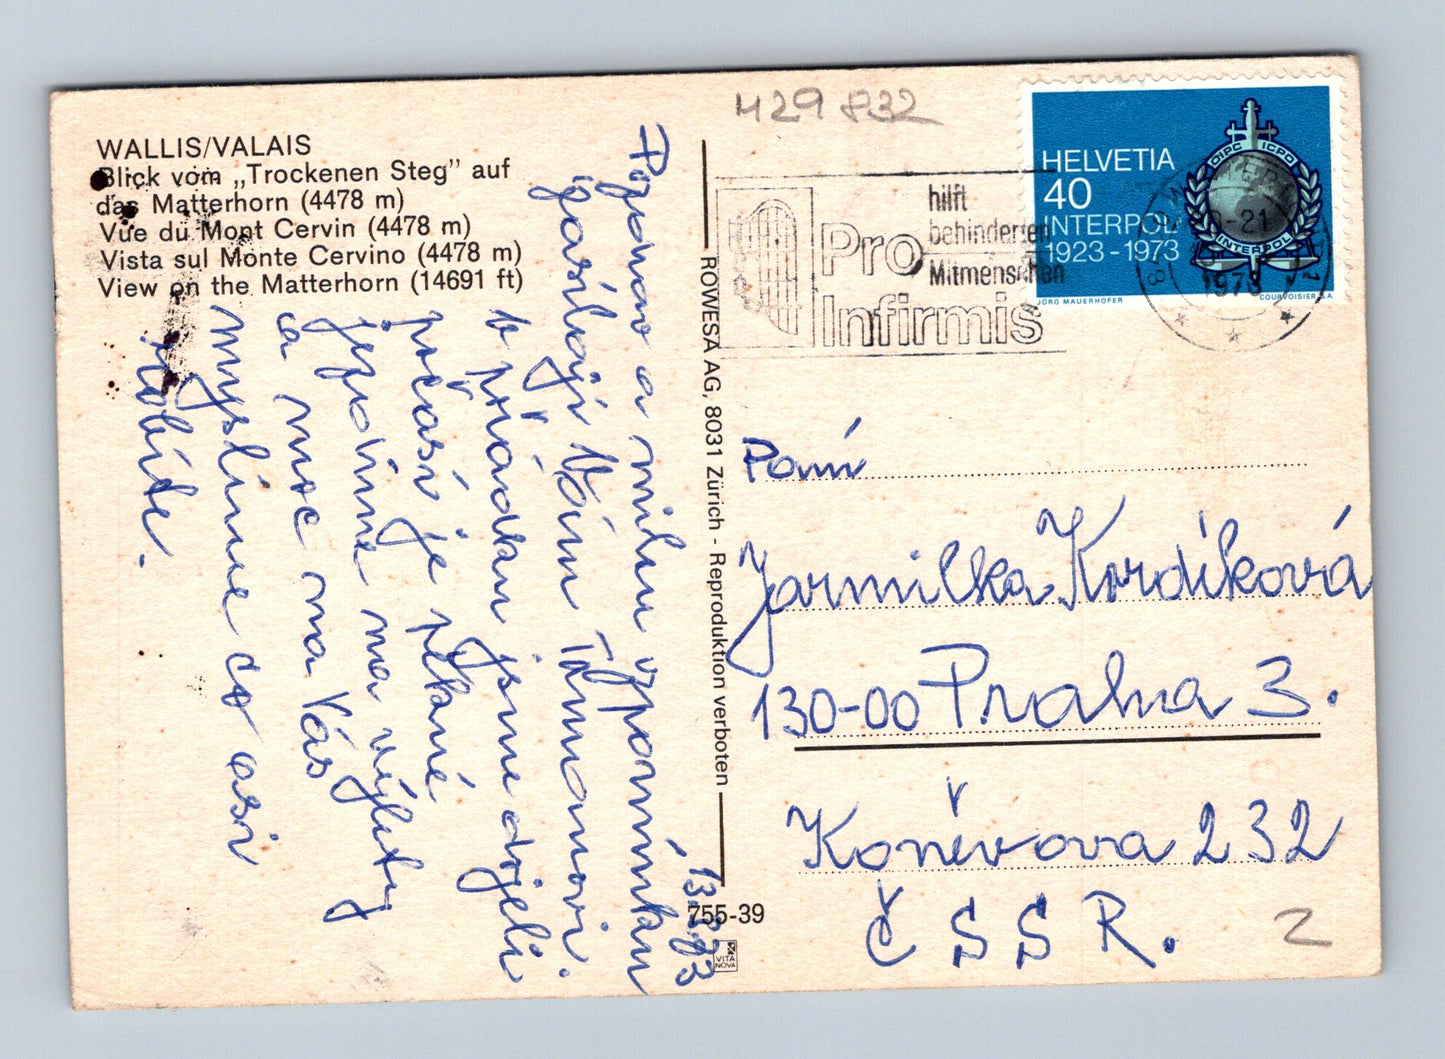 429 832
WALLIS/VALAIS
Blick vom „Trockenen Steg” auf
das Matterhorn (4478 m)
Vue du Mont Cervin (4478 m)
Vista sul Monte Cervino (4478 m)
View on the Matterhorn (14691 ft)
Pozdrav a milou vzpomínku
zasílají Vám Tůmovi.
V pořádku jsme dojeli
počasí je pěkné
jezdíme na výlety
a moc na Vás
myslíme co asi
robíte.
13.8.73
ROWESA AG, 8031 Zürich - Reproduktion verboten
755-39
VITA
NOVA
Pro
Infirmis
hilft
behinderten
Mitmenschen
HELVETIA
40
INTERPOL
1923-1973
OIPC ICPO
INTERPOL
JÖRG MAUERHOFER
COURVOISIER S.A.
-21
1973
Paní
Jarmilka Kordíková
130-00 Praha 3.
Koněvova 232
ČSSR.
2